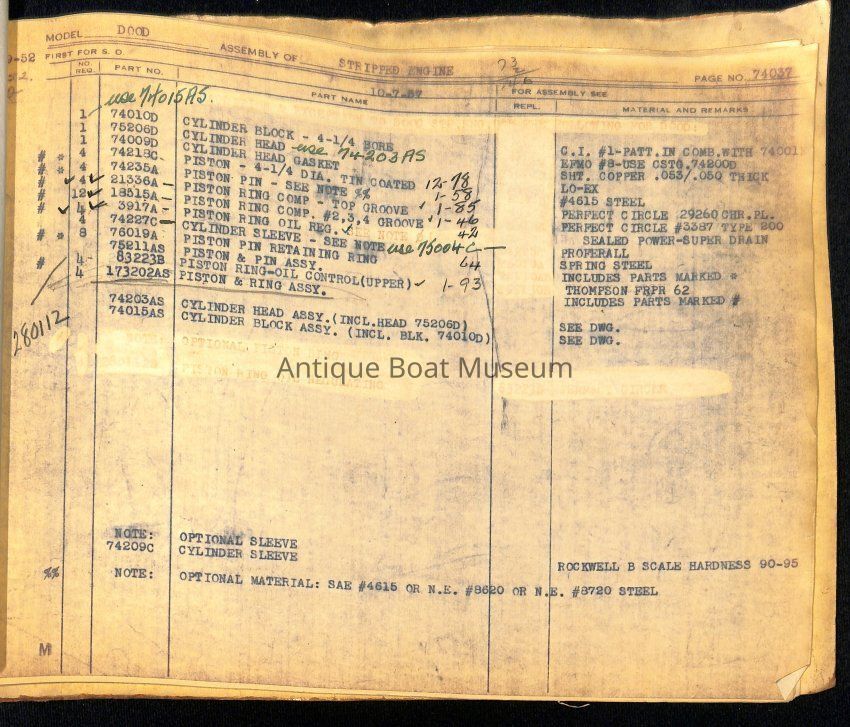 MODEL DOOD
9-52 FIRST FOR S. O. ASSEMBLY OF STRIPPED ENGINE PAGE NO. 74037
NO. REQ. PART NO. PART NAME 10-7-57 FOR ASSEMBLY SEE REPL. MATERIAL AND REMARKS
use 74015AS.
1 74010D CYLINDER BLOCK - 4-1/4 BORE C.I. #1-PATT.IN COMB.WITH 74001
1 75206D CYLINDER HEAD use 74203AS EFMO #8-USE CSTG.74200D
1 74009D CYLINDER HEAD GASKET SHT. COPPER .053/.050 THICK
# * 4 74218C PISTON - 4-1/4 DIA. TIN COATED LO-EX
# * 4 74235A PISTON PIN - SEE NOTE %% 12-78 #4615 STEEL
# 4 21336A PISTON RING COMP - TOP GROOVE 1-58 PERFECT CIRCLE 29260 CHR.PL.
# 12 18515A PISTON RING COMP. #2,3,4 GROOVE 1-85 PERFECT CIRCLE #3387 TYPE 200
# 4 3917A PISTON RING OIL REG. 1-46 SEALED POWER-SUPER DRAIN
4 74227C CYLINDER SLEEVE - SEE NOTE use 75004C PROFERALL
# * 8 76019A PISTON PIN RETAINING RING SPRING STEEL
75211AS PISTON & PIN ASSY. INCLUDES PARTS MARKED *
# 4 83223B PISTON RING-OIL CONTROL(UPPER) 1-93 THOMPSON FRPR 62
4 173202AS PISTON & RING ASSY. INCLUDES PARTS MARKED #
74203AS CYLINDER HEAD ASSY.(INCL.HEAD 75206D) SEE DWG.
74015AS CYLINDER BLOCK ASSY. (INCL. BLK. 74010D) SEE DWG.
280112
Antique Boat Museum
NOTE: OPTIONAL SLEEVE
74209C CYLINDER SLEEVE ROCKWELL B SCALE HARDNESS 90-95
%% NOTE: OPTIONAL MATERIAL: SAE #4615 OR N.E. #8620 OR N.E. #8720 STEEL
M